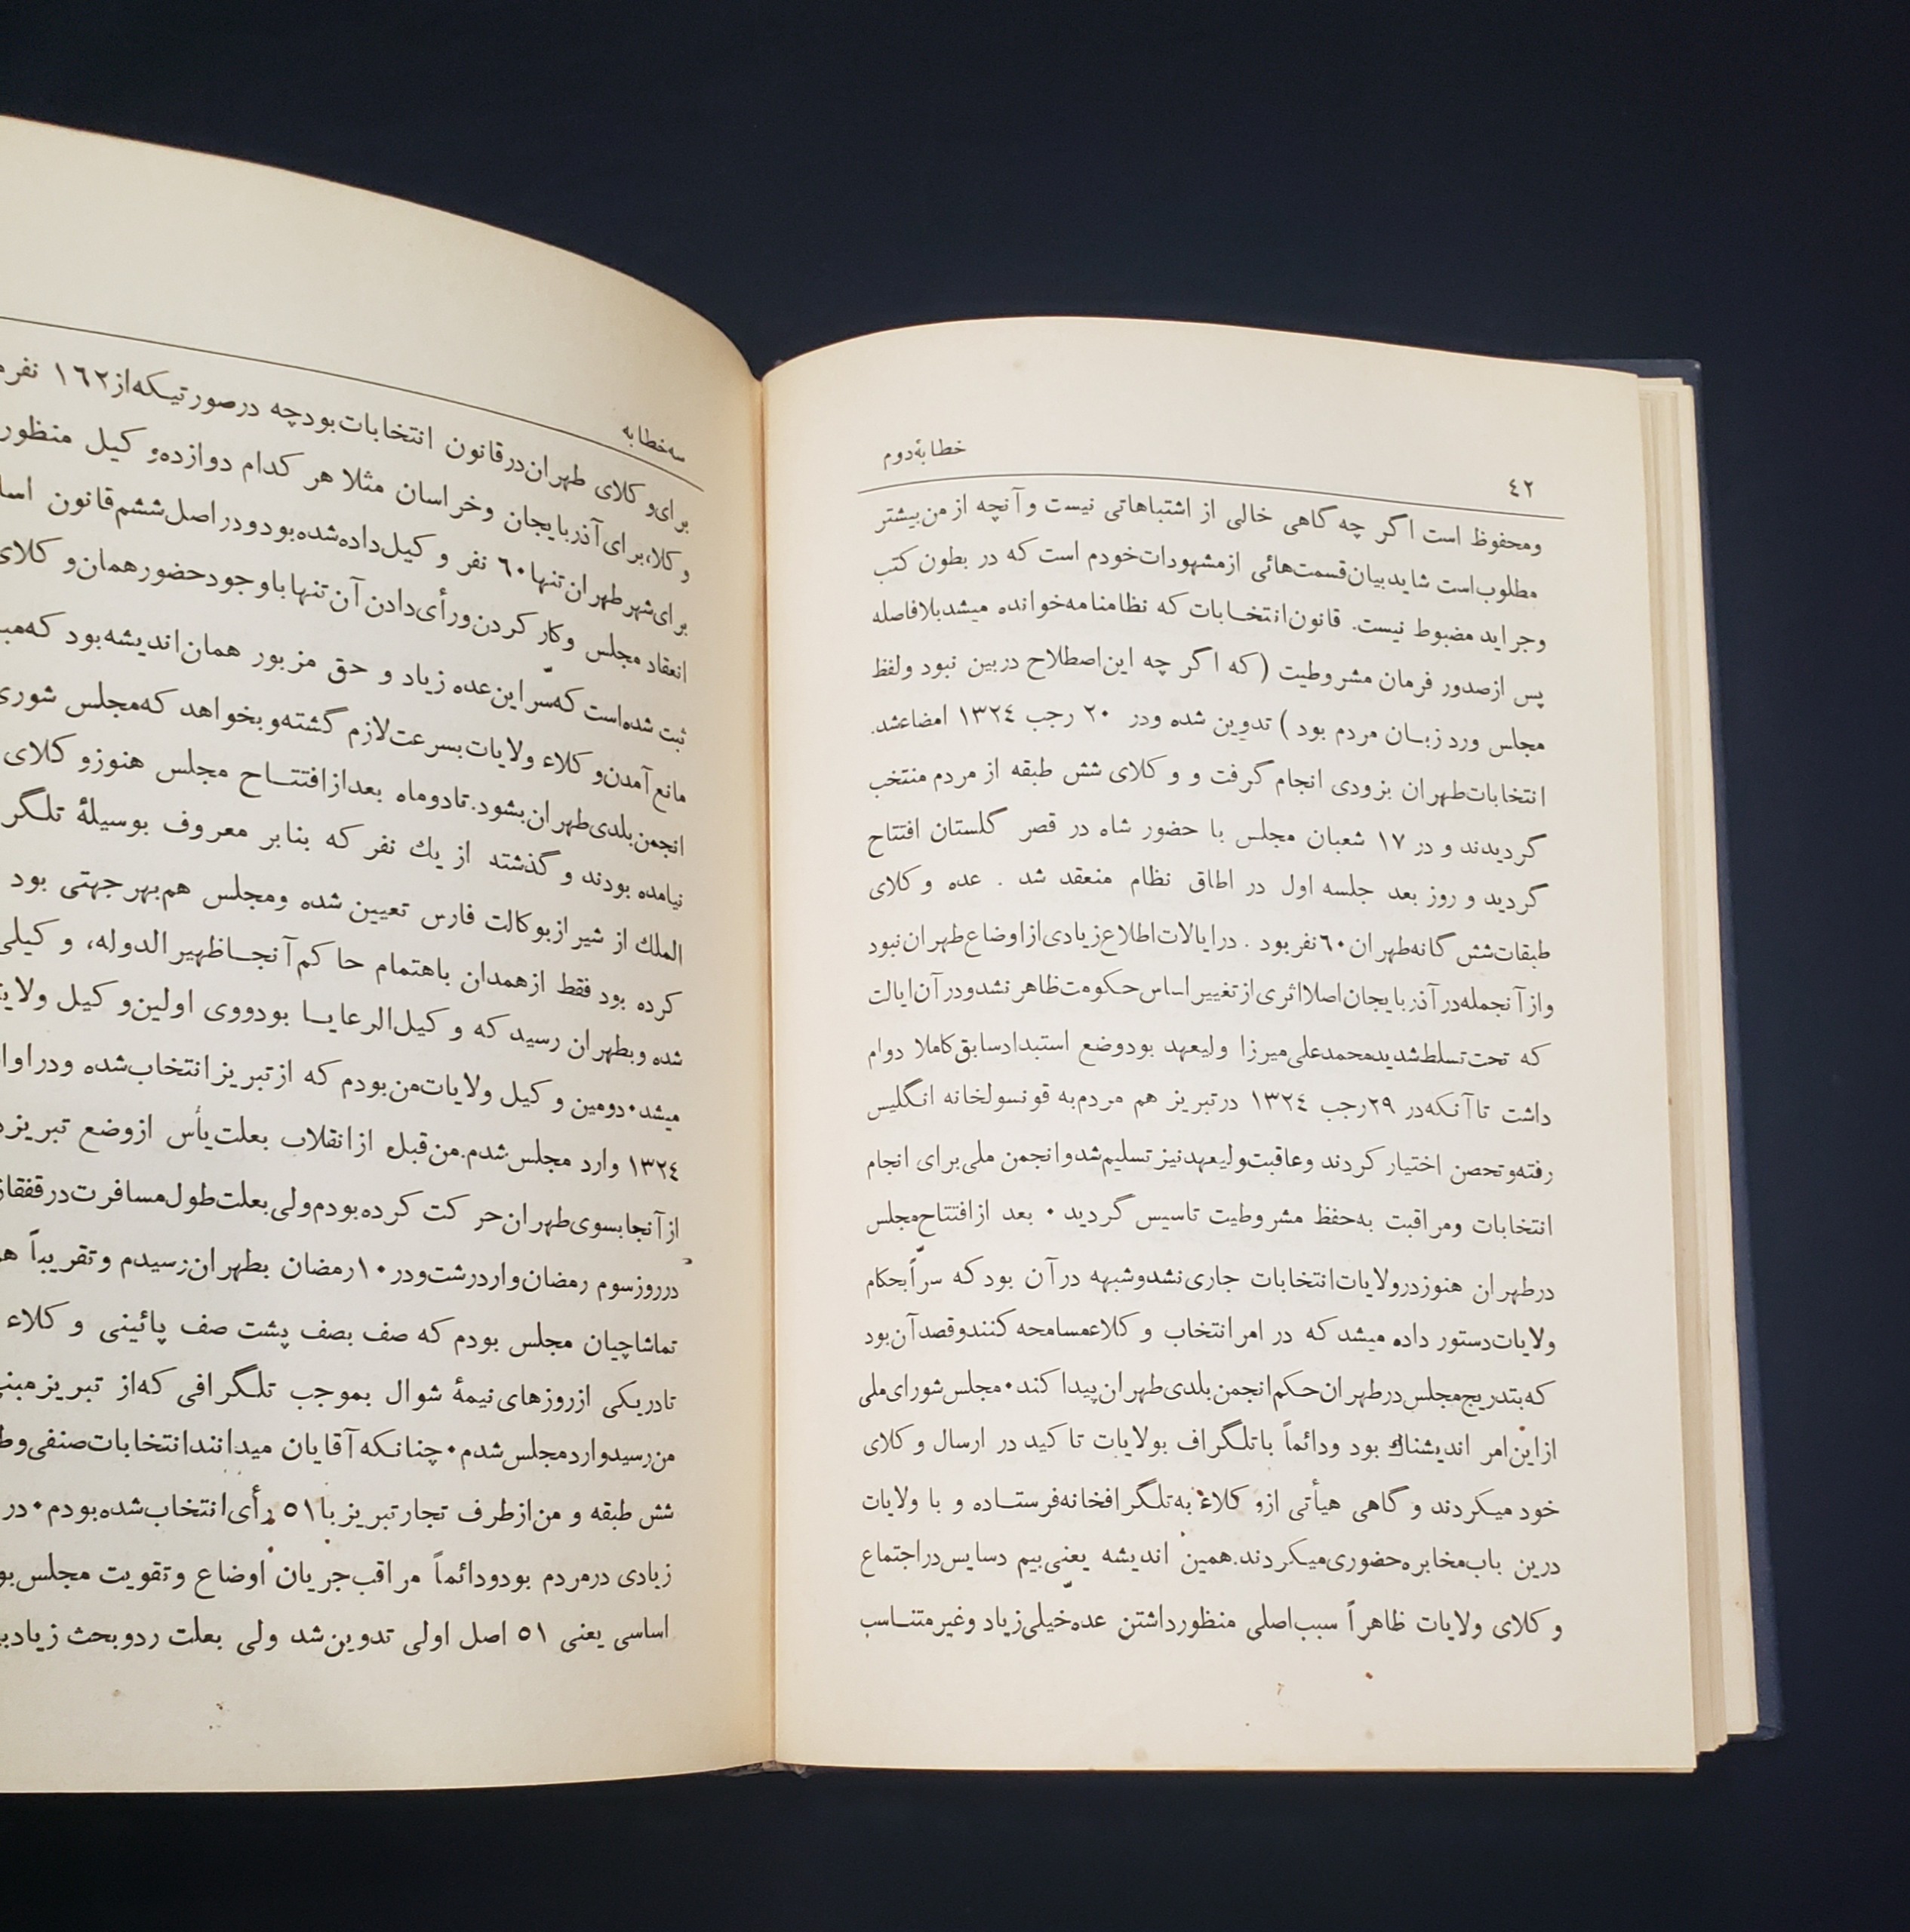 ٤٢
خطابهٔ دوم
ومحفوظ است اگر چه گاهی خالی از اشتباهاتی نیست و آنچه از من بیشتر
مطلوب است شاید بیان قسمت‌هائی از مشهودات خودم است که در بطون کتب
وجراید مضبوط نیست. قانون انتخابات که نظامنامه خوانده میشد بلافاصله
پس از صدور فرمان مشروطیت (که اگر چه این اصطلاح در بین نبود ولفظ
مجلس ورد زبان مردم بود) تدوین شده ودر ۲۰ رجب ۱۳۲٤ امضاء شد.
انتخابات طهران بزودی انجام گرفت و وکلای شش طبقه از مردم منتخب
گردیدند و در ۱۷ شعبان مجلس با حضور شاه در قصر گلستان افتتاح
گردید و روز بعد جلسه اول در اطاق نظام منعقد شد . عده وکلای
طبقات شش گانه طهران ۶۰ نفر بود . در ایالات اطلاع زیادی از اوضاع طهران نبود
واز آنجمله در آذربایجان اصلا اثری از تغییر اساس حکومت ظاهر نشد و در آن ایالت
که تحت تسلط شدید محمدعلی میرزا ولیعهد بود وضع استبداد سابق کاملا دوام
داشت تا آنکه در ۲۹ رجب ۱۳۲٤ در تبریز هم مردم به قونسولخانه انگلیس
رفته و تحصن اختیار کردند و عاقبت ولیعهد نیز تسلیم شد و انجمن ملی برای انجام
انتخابات ومراقبت به حفظ مشروطیت تاسیس گردید. بعد از افتتاح مجلس
در طهران هنوز در ولایات انتخابات جاری نشد و شبهه در آن بود که سرّاً بحکام
ولایات دستور داده میشد که در امر انتخاب وکلاء مسامحه کنند و قصد آن بود
که بتدریج مجلس در طهران حکم انجمن بلدی طهران پیدا کند. مجلس شورای ملی
از این امر اندیشناک بود ودائماً با تلگراف بولایات تاکید در ارسال وکلای
خود میکردند و گاهی هیأتی از وکلاء به تلگرافخانه فرستاده و با ولایات
درین باب مخابره حضوری میکردند. همین اندیشه یعنی بیم دسایس در اجتماع
وکلای ولایات ظاهراً سبب اصلی منظور داشتن عده خیلی زیاد وغیر متناسب
سه خطابه
برای وکلای طهران در قانون انتخابات بود چه در صورتیکه از ۱۶۲ نفر
وکلا، برای آذربایجان وخراسان مثلا هر کدام دوازده وکیل منظور
برای شهر طهران تنها ۶۰ نفر وکیل داده شده بود و در اصل ششم قانون
انعقاد مجلس وکار کردن و رأی دادن آن تنها با وجود حضور همان وکلای
ثبت شده است که سرّ این عده زیاد و حق مزبور همان اندیشه بود که
مانع آمدن وکلاء ولایات بسرعت لازم گشته و بخواهد که مجلس شورای
انجمن بلدی طهران بشود. تا دو ماه بعد از افتتاح مجلس هنوز وکلای
نیامده بودند و گذشته از یك نفر که بنابر معروف بوسیلهٔ
الملك از شیراز بوکالت فارس تعیین شده ومجلس هم بهر جهتی بود
کرده بود فقط از همدان باهتمام حاکم آنجا ظهیر الدوله، وکیلی
شده وبطهران رسید که وکیل الرعایا بود ووی اولین وکیل
میشد. دومین وکیل ولایات من بودم که از تبریز انتخاب شده
۱۳۲٤ وارد مجلس شدم. من قبل از انقلاب بعلت یأس از وضع تبریز
از آنجا بسوی طهران حرکت کرده بودم ولی بعلت طول مسافرت در
در روز سوم رمضان وارد رشت و در ۱۰ رمضان بطهران رسیدم وتقریباً
تماشاچیان مجلس بودم که صف بصف پشت صف پائینی وکلاء
تا در یکی از روزهای نیمهٔ شوال بموجب تلگرافی که از تبریز
من رسید وارد مجلس شدم. چنانکه آقایان میدانند انتخابات صنفی
شش طبقه و من از طرف تجار تبریز با ۵۱ رأی انتخاب شده بودم. در
زیادی در مردم بود ودائماً مراقب جریان اوضاع وتقویت مجلس
اساسی یعنی ۵۱ اصل اولی تدوین شد ولی بعلت رد و بحث زیاد